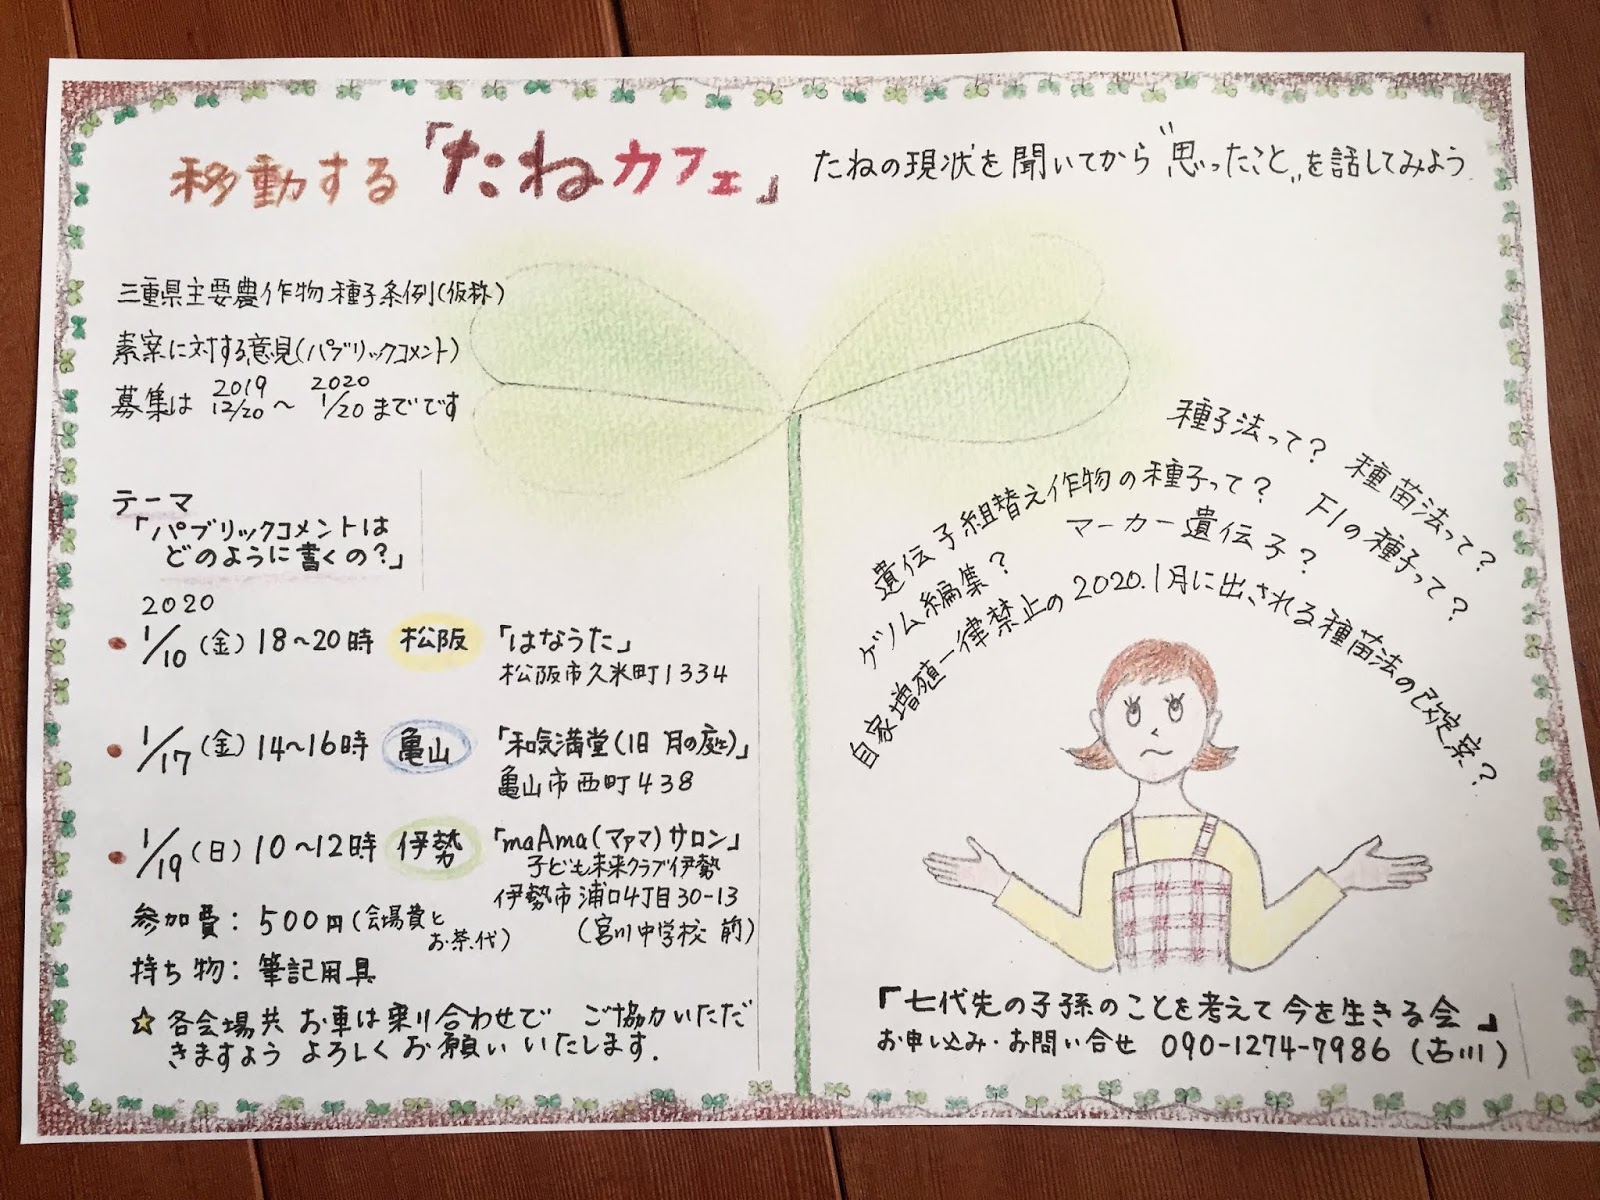 移動する「たねカフェ」
たねの現状を聞いてから"思ったこと"を話してみよう
三重県主要農作物種子条例(仮称)
素案に対する意見(パブリックコメント)
募集は 2019 12/20～ 2020 1/20までです
テーマ
「パブリックコメントは
どのように書くの?」
2020
・1/10(金)18～20時 松阪 「はなうた」
松阪市久米町1334
・1/17(金)14～16時 亀山 「和気満堂(旧 月の庭)」
亀山市西町438
・1/19(日)10～12時 伊勢 「maAma(マァマ)サロン」
子ども未来クラブ伊勢
伊勢市浦口4丁目30-13
(宮川中学校 前)
参加費：500円(会場費と
お茶代)
持ち物：筆記用具
☆各会場共 お車は乗り合わせで ご協力いただ
きますよう よろしくお願いいたします.
種子法って? 種苗法って?
遺伝子組替え作物の種子って? F1の種子って?
ゲノム編集? マーカー遺伝子?
自家増殖一律禁止の2020.1月に出される種苗法の改定案?
「七代先の子孫のことを考えて今を生きる会」
お申し込み・お問い合せ 090-1274-7986(古川)